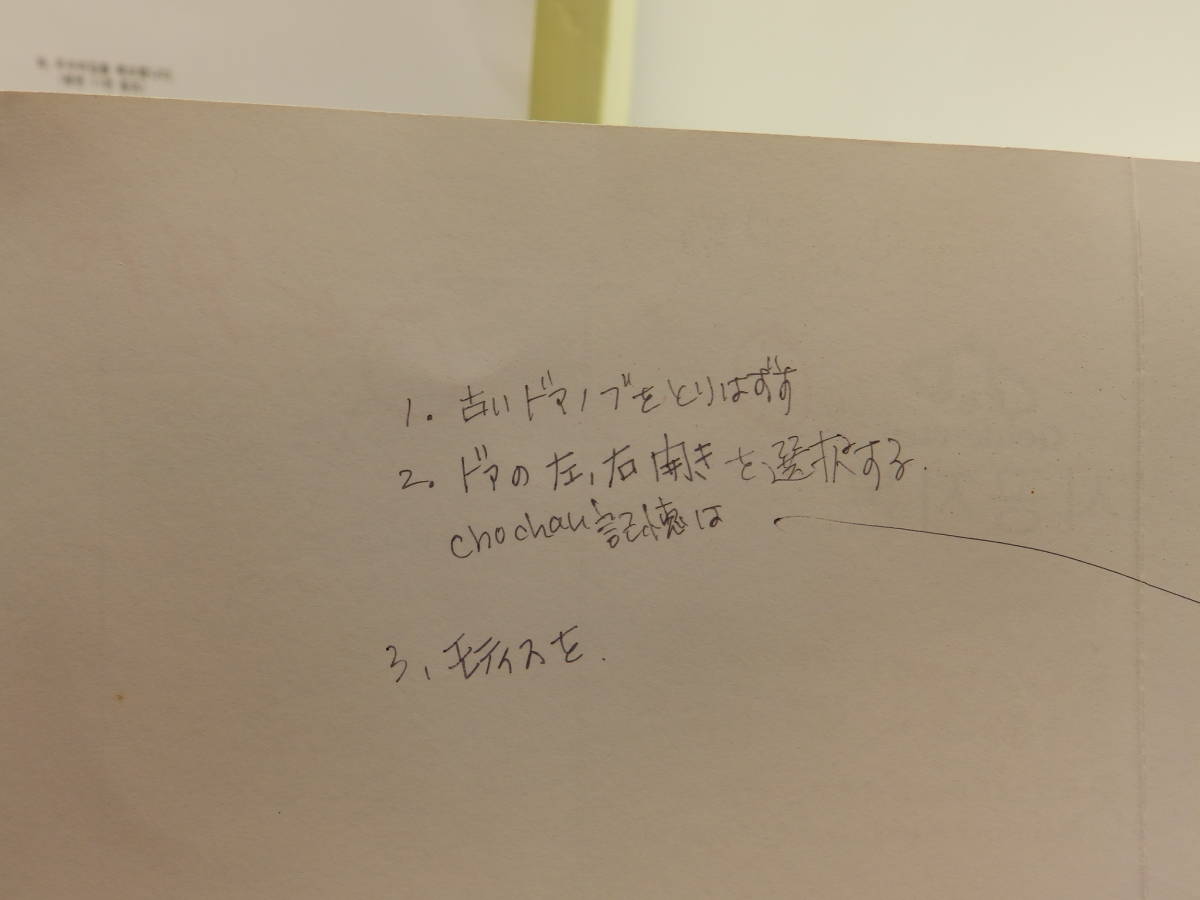 1. 古いドアノブをとりはずす
2. ドアの左,右開きを選択する.
記憶は
3. モティスを.